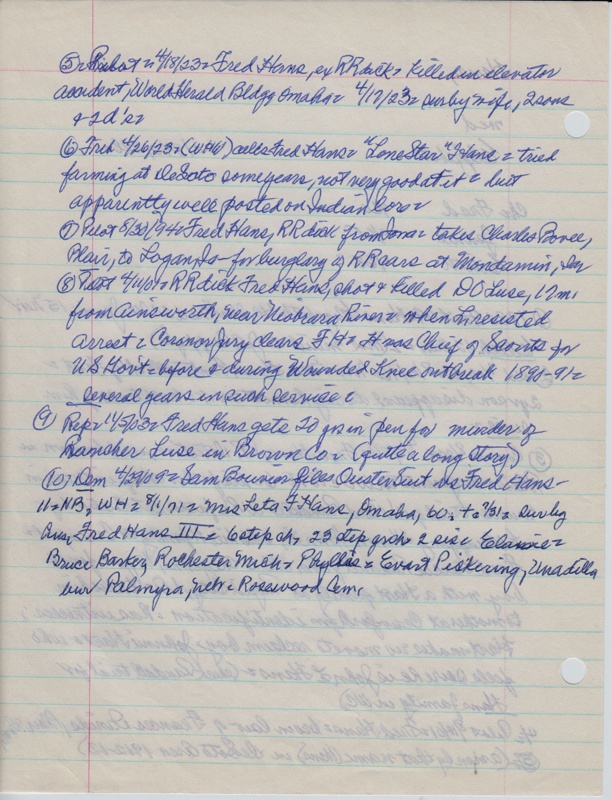 ⑤ = 4/18/23 = Fred Hans, ex RR dick = killed in elevator
accident, World Herald Bldg Omaha = 4/17/23 = sur by wife, 2 sons
& 2 d's =
⑥ 4/26/23 = (WHW) calls Fred Hans = "Lone Star" Hans = tried
farming at DeSoto some years, not very good at it = but
apparently well posted on Indian lore =
⑦ Pilot 8/30/94 = Fred Hans, RR dick from = takes Charles Bovee,
Blair, to Logan, Ia for burglary of RR cars at Mondamin,
⑧ = RR dick Fred Hans, shot & killed DO Luse, 12 mi
from Ainsworth, near Niobrara River = when L resisted
arrest = Coronor Jury clears FH = H was Chief of Scouts for
US Gov't = before & during Wounded Knee outbreak 1890-91 =
several years in such service =
⑨ Rep = 11/5/03 = Fred Hans gets 20 yrs in pen for murder of
Rancher Luse in Brown Co = (quite a long story)
⑩ Dem 4/29/09 = Sam Bouvier files Ouster Suit vs Fred Hans -
11 = NB = WH = 8/1/71 = Mrs Leta F Hans, Omaha, 60 = 7/31 = sur by
Fred Hans III = 6 step ch, 23 step grch = 2 sis = Elanie =
Bruce Barker Rochester Mich = Phyllis = Evart Pickering, Unadilla
bur Palmyra, = Rosewood Cem,